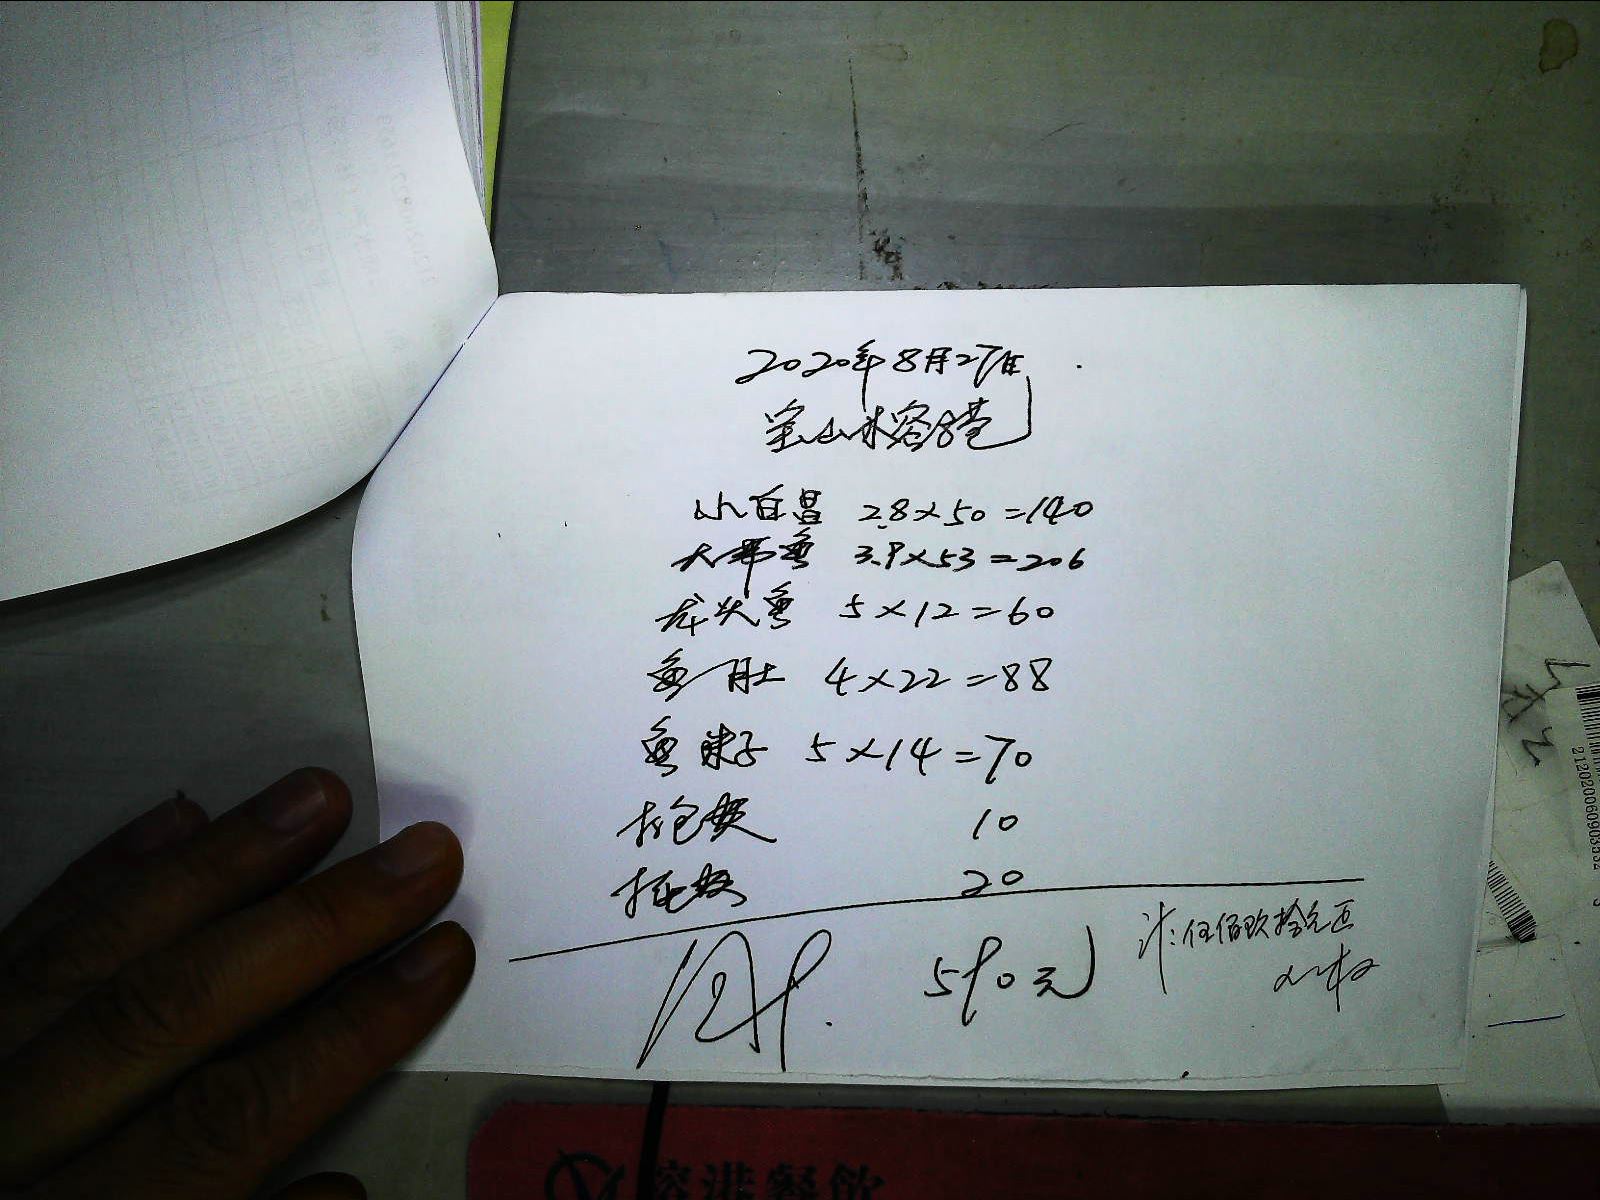 2020年8月27日
宝山米容8巷
小白昌 2.8×50=140
大带鱼 3.9×53=206
龙头鱼 5×12=60
鱼肚 4×22=88
鱼籽 5×14=70
打包费 10
托运费 20
590元
计:伍佰玖拾元正
212020060903552
榕港餐飲